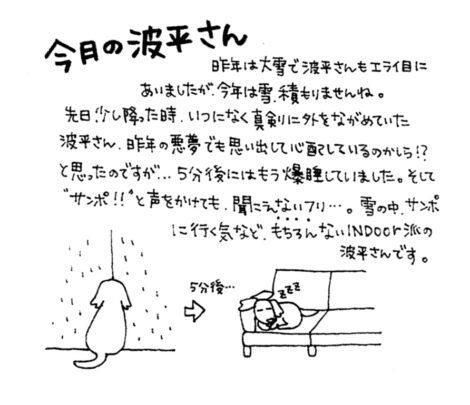 今月の波平さん
昨年は大雪で波平さんもエライ目に
あいましたが、今年は雪、積もりませんね。
先日、少し降った時、いつになく真剣に外をながめていた
波平さん、昨年の悪夢でも思い出して心配しているのかしら!?
と思ったのですが…5分後にはもう爆睡していました。そして
"サンポ!!"と声をかけても、聞こえないフリ…。雪の中、サンポ
に行く気など、もちろんないINDOOR派の
波平さんです。
5分後…
zzz